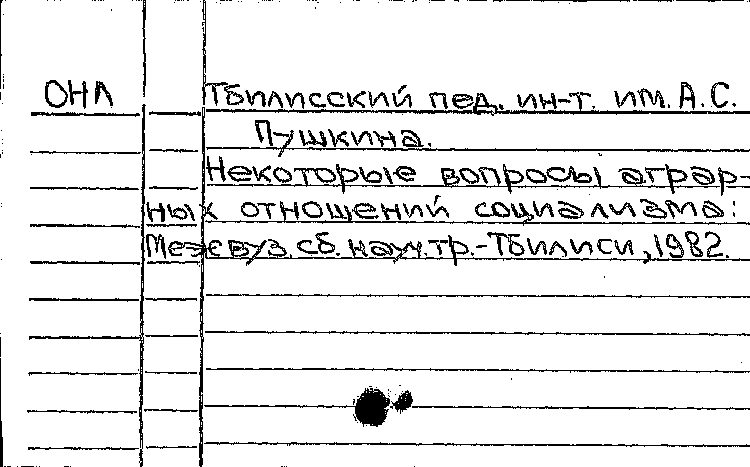 ОНЛ Тбилисский пед. ин-т. им. А.С.
Пушкина.
Некоторые вопросы аграр-
ных отношений социализма:
Межвуз. сб. науч. тр.-Тбилиси, 1982.